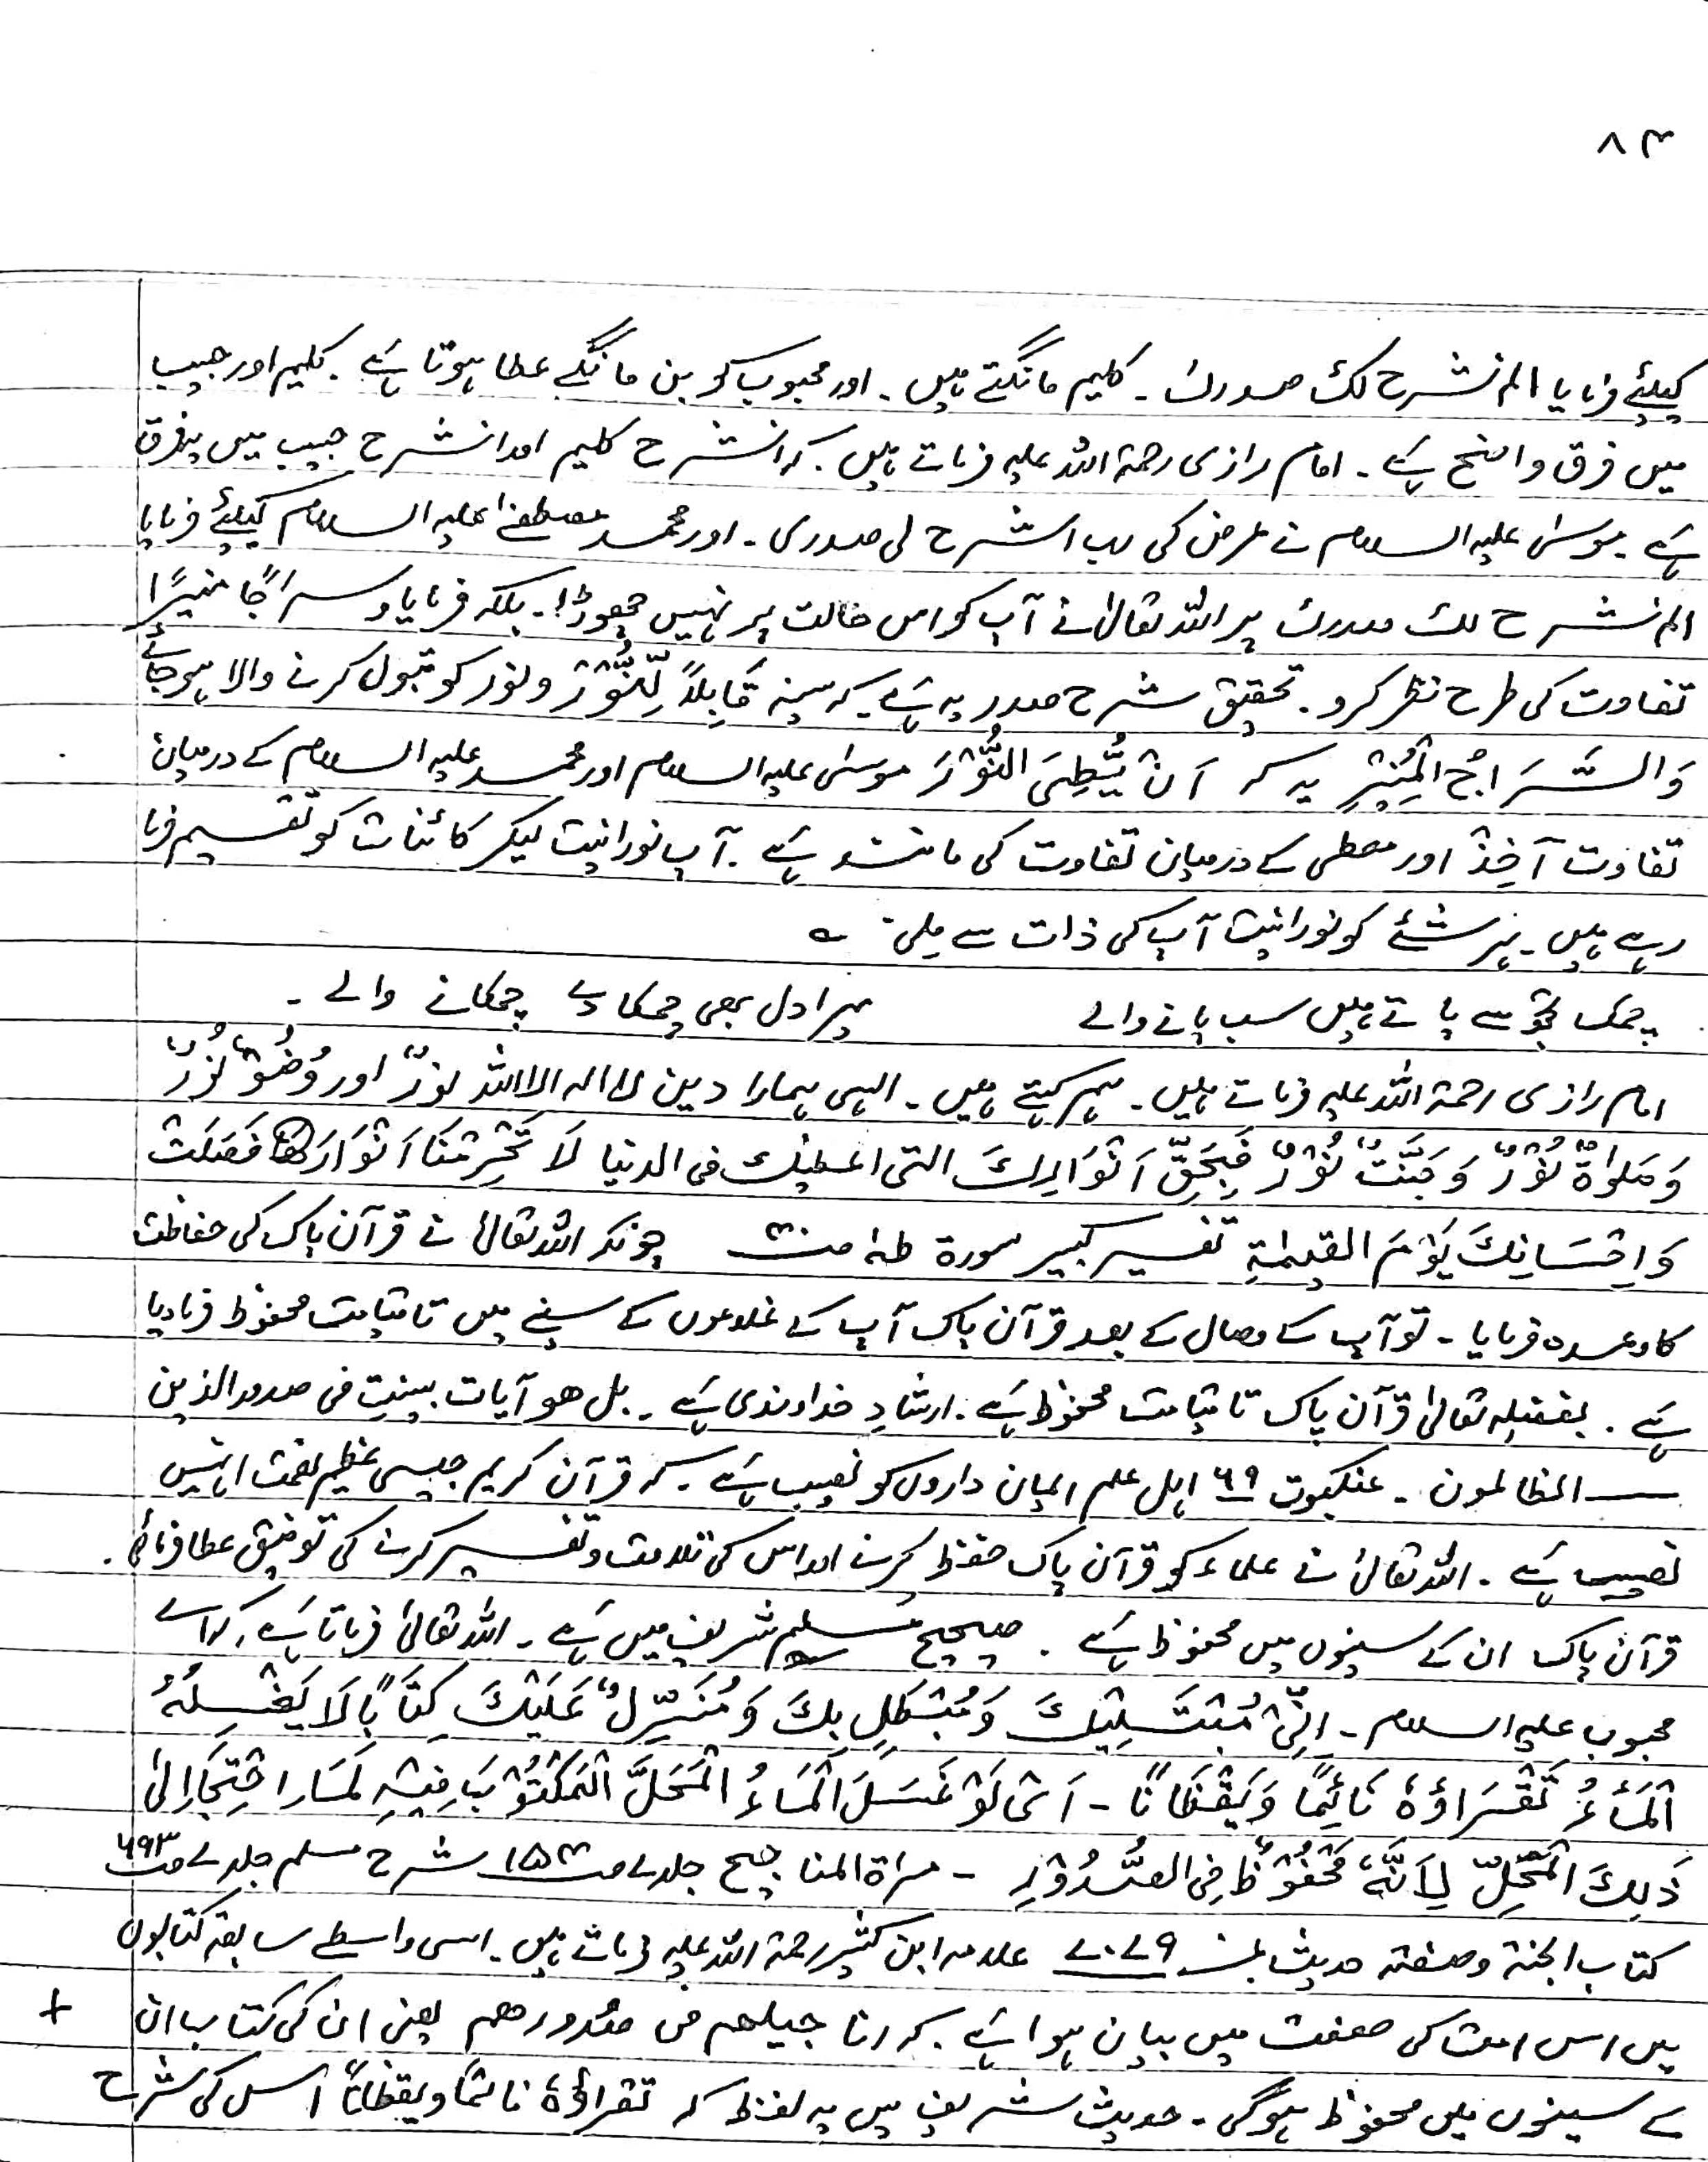 ۸۳
کیلئے فرمایا الم نشرح لک صدرک ۔ کلیم مانگتے ہیں ۔ اور محبوب کو بن مانگے عطا ہوتا ہے ۔ کلیم اور حبیب
میں فرق واضح ہے ۔ امام رازی رحمۃ اللہ علیہ فرماتے ہیں ۔ کہ انشرح کلیم اور انشرح حبیب میں یہ فرق
ہے ۔ موسیٰ علیہ السلام نے عرض کی رب اشرح لی صدری ۔ اور محمد مصطفےٰ علیہ السلام کیلئے فرمایا
الم نشرح لک صدرک پر اللہ تعالیٰ نے آپ کو اس حالت پر نہیں چھوڑا ۔ بلکہ فرمایا و سراجًا منیرًا
تفاوت کی طرح نظر کرو ۔ تحقیق شرح صدر یہ ہے ۔ کہ سینہ قَابِلًا لِّلنُّوْر و نور کو قبول کرنے والا ہو جائے
وَالسَّرَاجُ الْمُنِیْرِ یہ کہ اَنْ یُّطِیَ النُّوْرَ موسیٰ علیہ السلام اور محمد علیہ السلام کے درمیان
تفاوت آخِذ اور معطی کے درمیان تفاوت کی مانند ہے ۔ آپ نورانیت لیکر کائنات کو تقسیم فرما
رہے ہیں ۔ ہر شئے کو نورانیت آپ کی ذات سے ملی ۔ ؎
چمک تجھ سے پاتے ہیں سب پانے والے میرا دل بھی چمکا دے چمکانے والے ۔
امام رازی رحمۃ اللہ علیہ فرماتے ہیں ۔ ہم کہتے ہیں ۔ الہی ہمارا دین لا الہ الا اللہ نورٌ اور وُضُوْ نُوْرٌ
وَصَلوٰۃٌ نُوْرٌ وَ جَنَّتٌ نُوْرٌ فَبِحَقِّ اَنْوَارِكَ التی اعطیتک فی الدنیا لَا تَحْرِمْنَا اَنْوَارَ فَضْلِكَ
وَاِحْسَانِكَ یَوْمَ القیٰمۃِ تفسیر کبیر سورۃ طہٰ چونکہ اللہ تعالیٰ نے قرآن پاک کی حفاظت
کا وعدہ فرمایا ۔ تو آپ کے وصال کے بعد قرآن پاک آپ کے غلاموں کے سینے میں تا قیامت محفوظ فرما دیا
ہے ۔ بفضلہ تعالیٰ قرآن پاک تا قیامت محفوظ ہے ۔ ارشادِ خداوندی ہے ۔ بل ھو آیات بینت فی صدور الذین
الظالمون ۔ عنکبوت ۴۹ اہل علم ایمان داروں کو نصیب ہے ۔ کہ قرآن کریم جیسی عظیم نعمت انہیں
نصیب ہے ۔ اللہ تعالیٰ نے علماء کو قرآن پاک حفظ کرنے اور اس کی تلاوت و تفسیر کرنے کی توفیق عطا فرمائی ۔
قرآن پاک ان کے سینوں میں محفوظ ہے ۔ صحیح مسلم شریف میں ہے ۔ اللہ تعالیٰ فرماتا ہے ۔ کہ اے
محبوب علیہ السلام ۔ اِنِّیْ مُبْتَلِیْكَ وَمُبْتَلِ بِكَ وَمُنَزِّلٌ عَلَیْكَ کِتَابًا لَا یَغْسِلُهُ
الْمَآءُ تَقْرَاؤُهٗ نَائِمًا وَیَقْظَانًا ۔ اَیْ لَوْ غَسَلَ الْمَاءُ الْمَحَلَّ الْمَکْتُوْبَ فِیْہِ لَمَا احْتِیْجَ اِلٰی
ذَلِكَ الْمَحَلِّ لِاَنَّهٗ مَحْفُوْظٌ فِی الصُّدُوْرِ ۔ مراۃ المناجیح جلد ۷ ص ۱۵۳ شرح مسلم جلد ۷ ص ۶۹۳
کتاب الجنۃ وصفتہ حدیث نمبر ۷۰۷۹ علامہ ابن کثیر رحمۃ اللہ علیہ فرماتے ہیں ۔ اسی واسطے سابقہ کتابوں
میں اس امت کی صفت میں بیان ہوا ہے ۔ کہ انا جیلھم فی صدورھم یعنی ان کی کتاب ان +
کے سینوں میں محفوظ ہوگی ۔ حدیث شریف میں یہ لفظ کہ تقراؤہٗ نائمًا ویقظانًا اس کی شرح